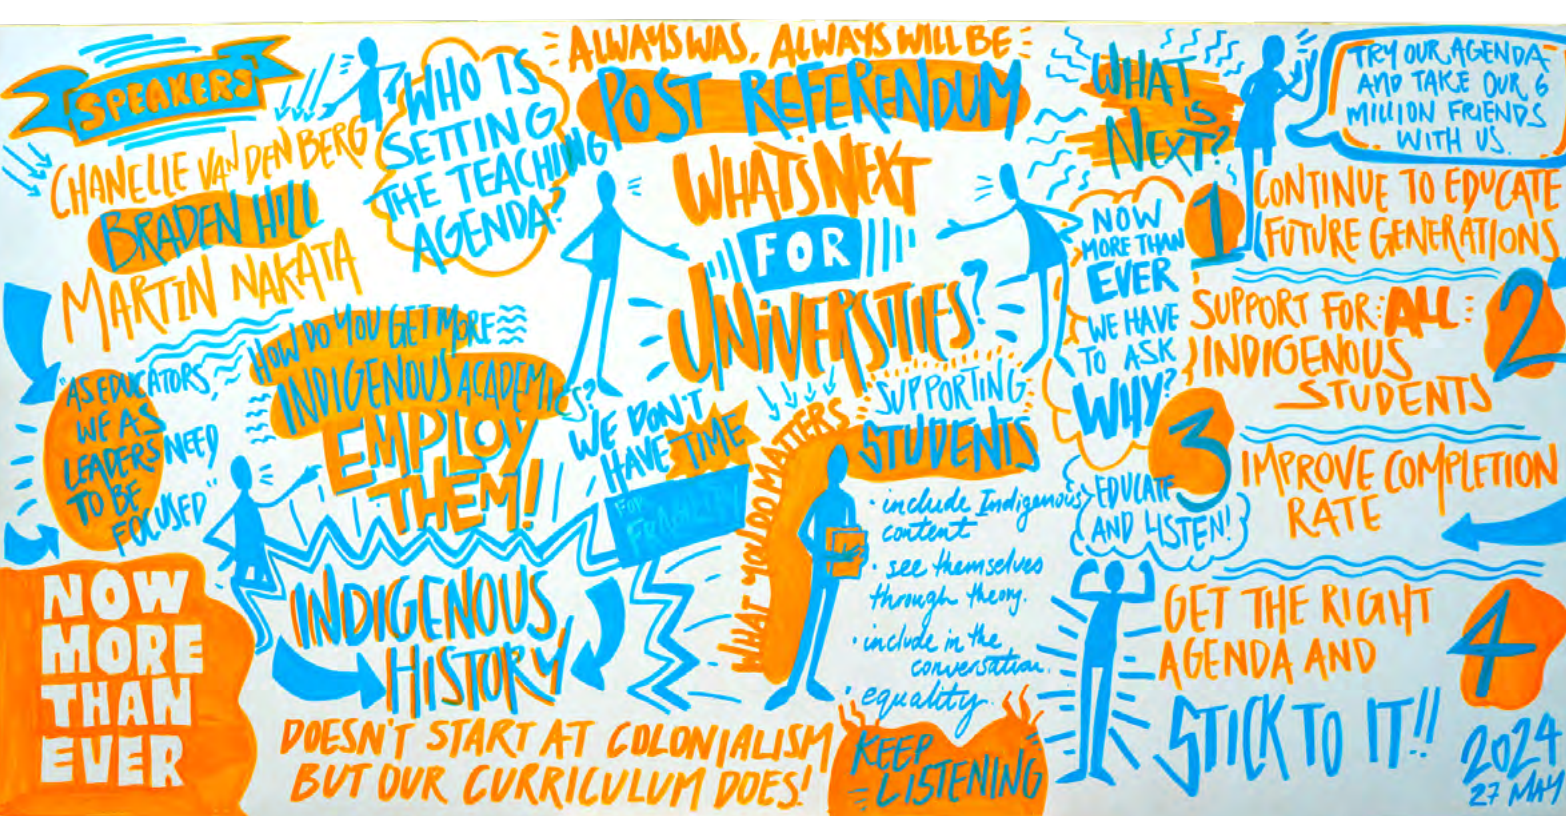 SPEAKERS
CHANELLE VAN DEN BERG
BRADEN HILL
MARTIN NAKATA
WHO IS
SETTING
THE TEACHING
AGENDA?
ALWAYS WAS, ALWAYS WILL BE
POST REFERENDUM
WHAT'S NEXT
FOR
UNIVERSITIES?
"AS EDUCATORS,
WE AS
LEADERS NEED
TO BE
FOCUSED"
HOW DO YOU GET MORE
INDIGENOUS ACADEMICS?
EMPLOY
THEM!
WE DON'T
HAVE TIME
FOR
FRAGILITY
NOW
MORE
THAN
EVER
INDIGENOUS
HISTORY
DOESN'T START AT COLONIALISM
BUT OUR CURRICULUM DOES!
WHAT YOU DO MATTERS
SUPPORTING
STUDENTS
• include Indigenous
content
• see themselves
through theory.
• include in the
conversation.
• equality.
KEEP
LISTENING
WHAT
IS
NEXT?
TRY OUR AGENDA
AND TAKE OUR 6
MILLION FRIENDS
WITH US.
NOW
MORE THAN
EVER
WE HAVE
TO ASK
WHY?
EDUCATE
AND LISTEN!
1 CONTINUE TO EDUCATE
FUTURE GENERATIONS
SUPPORT FOR ALL 2
INDIGENOUS
STUDENTS
3 IMPROVE COMPLETION
RATE
GET THE RIGHT 4
AGENDA AND
STICK TO IT!!
2024
27 MAY